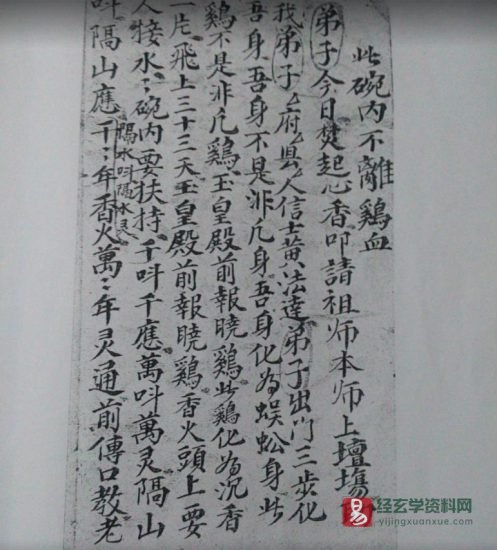 此碗内不離鷄血
弟子今日焚起心香叩請祖师本师上壇場
我弟子厶府厶县人信士黄法達弟子出门三步化
吾身吾身不是非凡身吾身化为蜈蚣身此
鷄不是非凡鷄玉皇殿前報曉鷄此鷄化为沉香
一片飛上三十三天玉皇殿前報曉鷄香火頭上要
人接水水碗内要扶持千呌千應萬呌萬灵隔山
呌隔山應隔水呌隔水灵千千年香火萬萬年灵通前傳口教老
经玄学资料网
yijingxuanxue.com